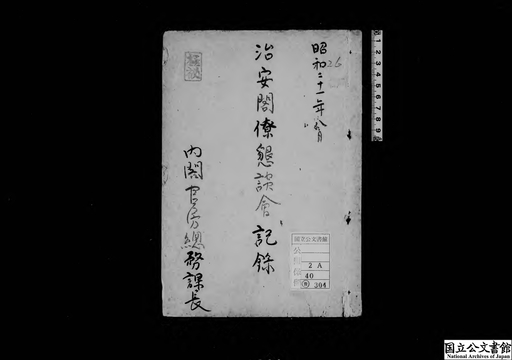 昭和二十一年八月
26
治安閣僚懇談會記錄
内閣官房總務課長
国立公文書館
2 A
40
304
1 2 3 4 5 6 7 8 9
国立公文書館
National Archives of Japan